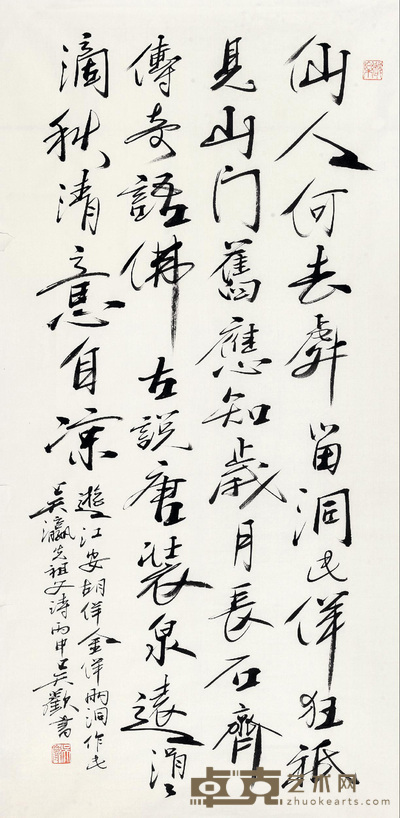 仙人何去留洞也佯狂祗
見山門舊應知歲月長石齊
傳奇語佛古說唐裝泉遠涓
滴秋清意自涼
遊江安胡佯金佯兩洞作也
吳瀛先祖父詩丙申吳歡書
卓克艺术网
zhuokearts.com